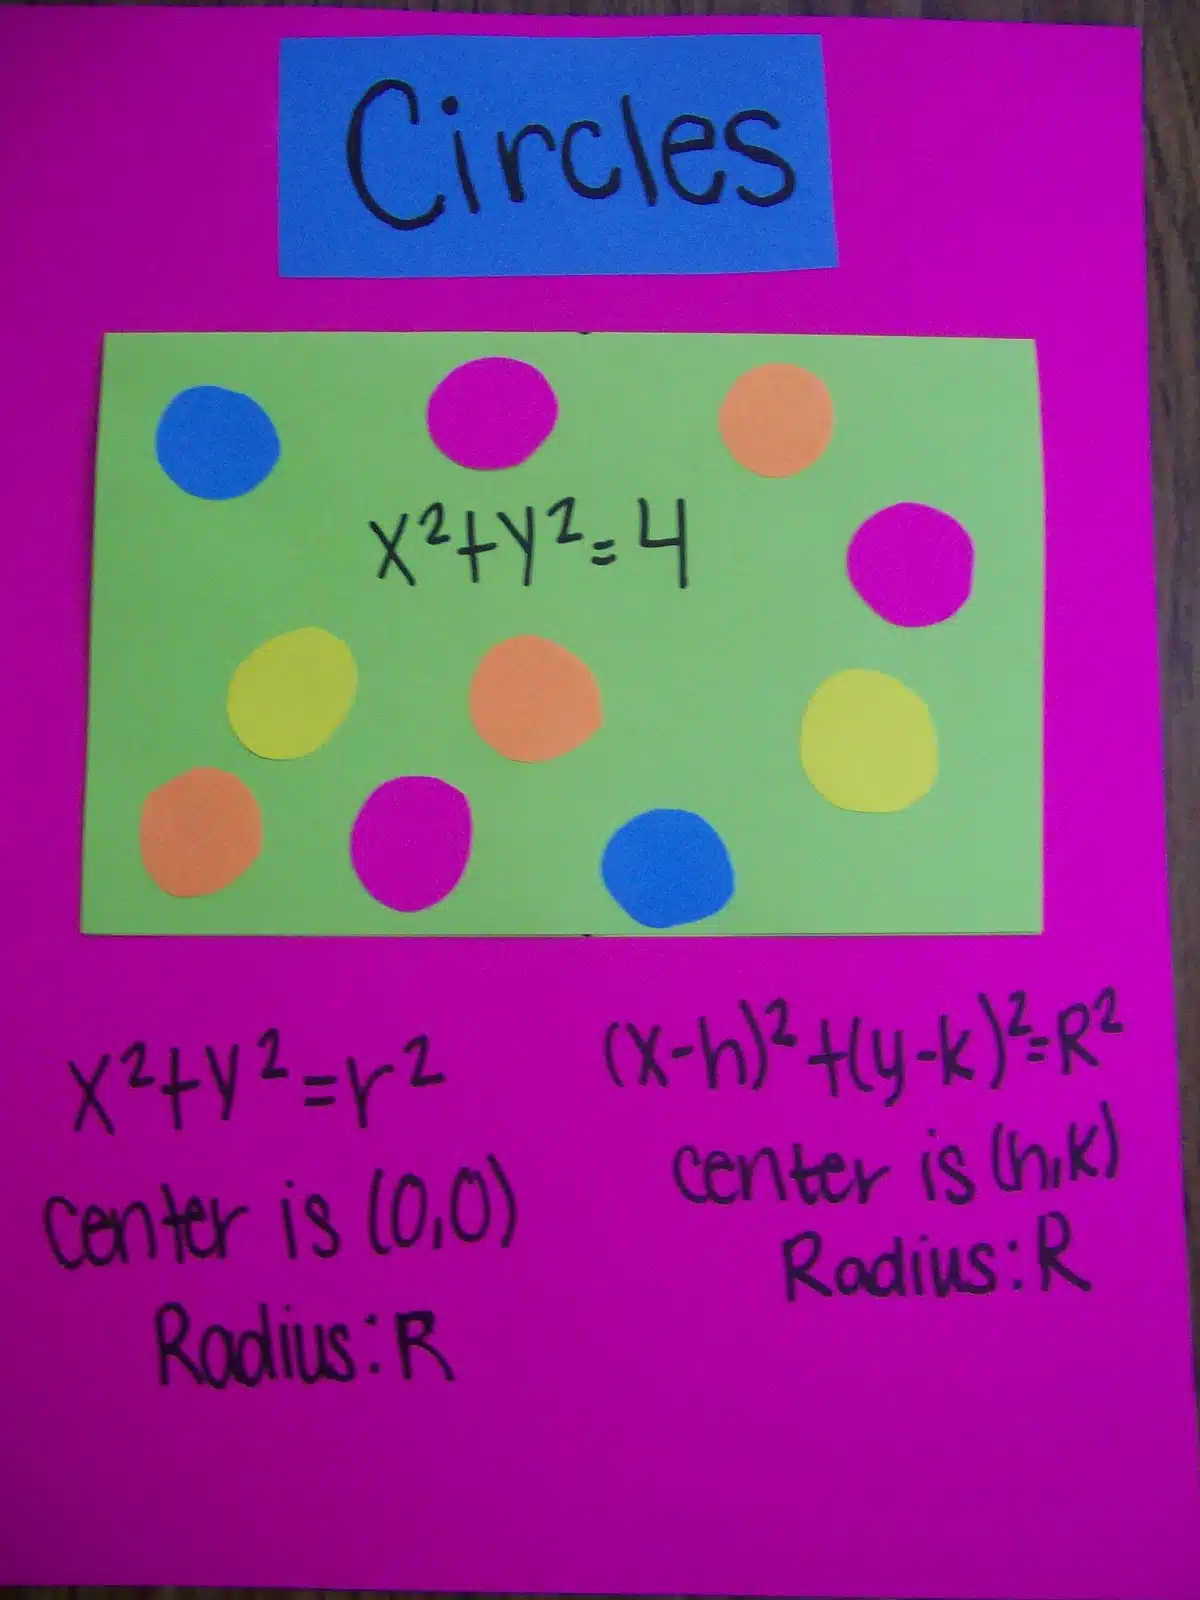 Circles
x²+y²=4
x²+y²=r²
center is (0,0)
Radius: R
(x-h)²+(y-k)²=R²
center is (h,k)
Radius: R